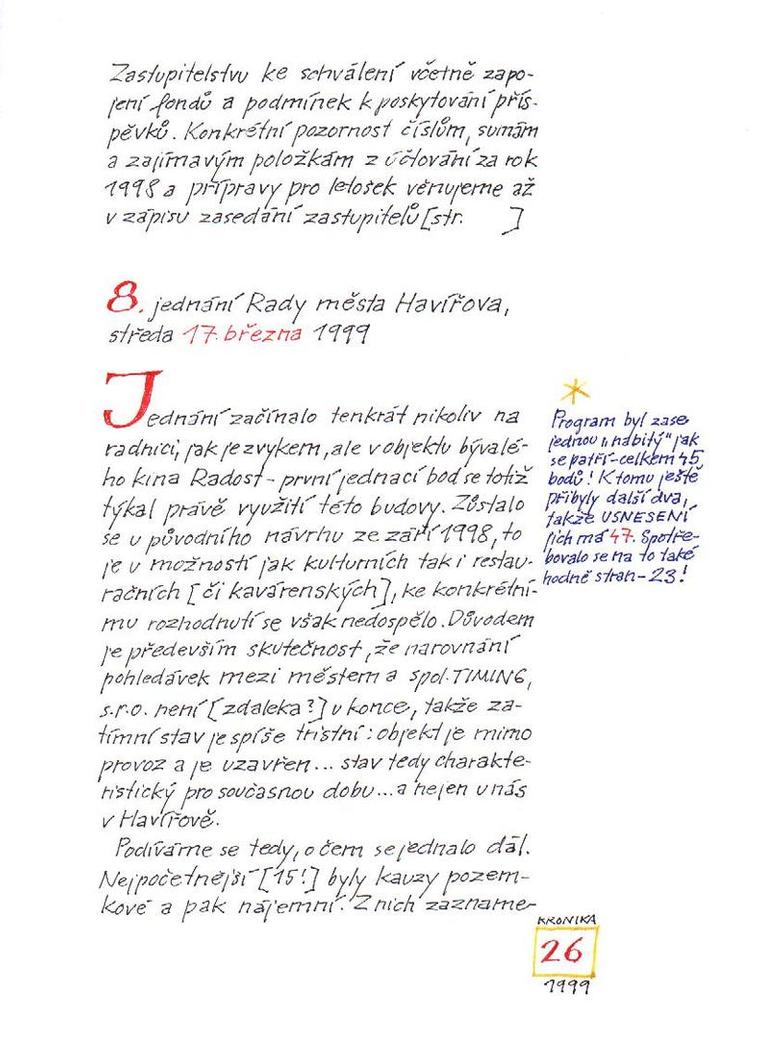 Zastupitelstvu ke schválení včetně zapo-
jení fondů a podmínek k poskytování přís-
pěvků. Konkrétní pozornost číslům, sumám
a zajímavým položkám z účtování za rok
1998 a přípravy pro letošek věnujeme až
v zápisu zasedání zastupitelů [str.      ]
8. jednání Rady města Havířova,
středa 17. března 1999
Jednání začínalo tenkrát nikoliv na
radnici, jak je zvykem, ale v objektu bývalé-
ho kina Radost - první jednací bod se totiž
týkal právě využití této budovy. Zůstalo
se u původního návrhu ze září 1998, to
je u možností jak kulturních tak i restau-
račních [či kavárenských], ke konkrétní-
mu rozhodnutí se však nedospělo. Důvodem
je především skutečnost, že narovnání
pohledávek mezi městem a spol. TIMING,
s.r.o. není [zdaleka?] u konce, takže za-
tímní stav je spíše tristní: objekt je mimo
provoz a je uzavřen... stav tedy charakte-
ristický pro současnou dobu... a nejen u nás
v Havířově.
Podíváme se tedy, o čem se jednalo dál.
Nejpočetnější [15!] byly kauzy pozem-
kové a pak nájemní. Z nich zazname-
*
Program byl zase
jednou „nabitý" jak
se patří - celkem 45
bodů! K tomu ještě
přibyly další dva,
takže USNESENÍ
jich má 47. Spotře-
bovalo se na to také
hodně stran - 23!
KRONIKA
26
1999